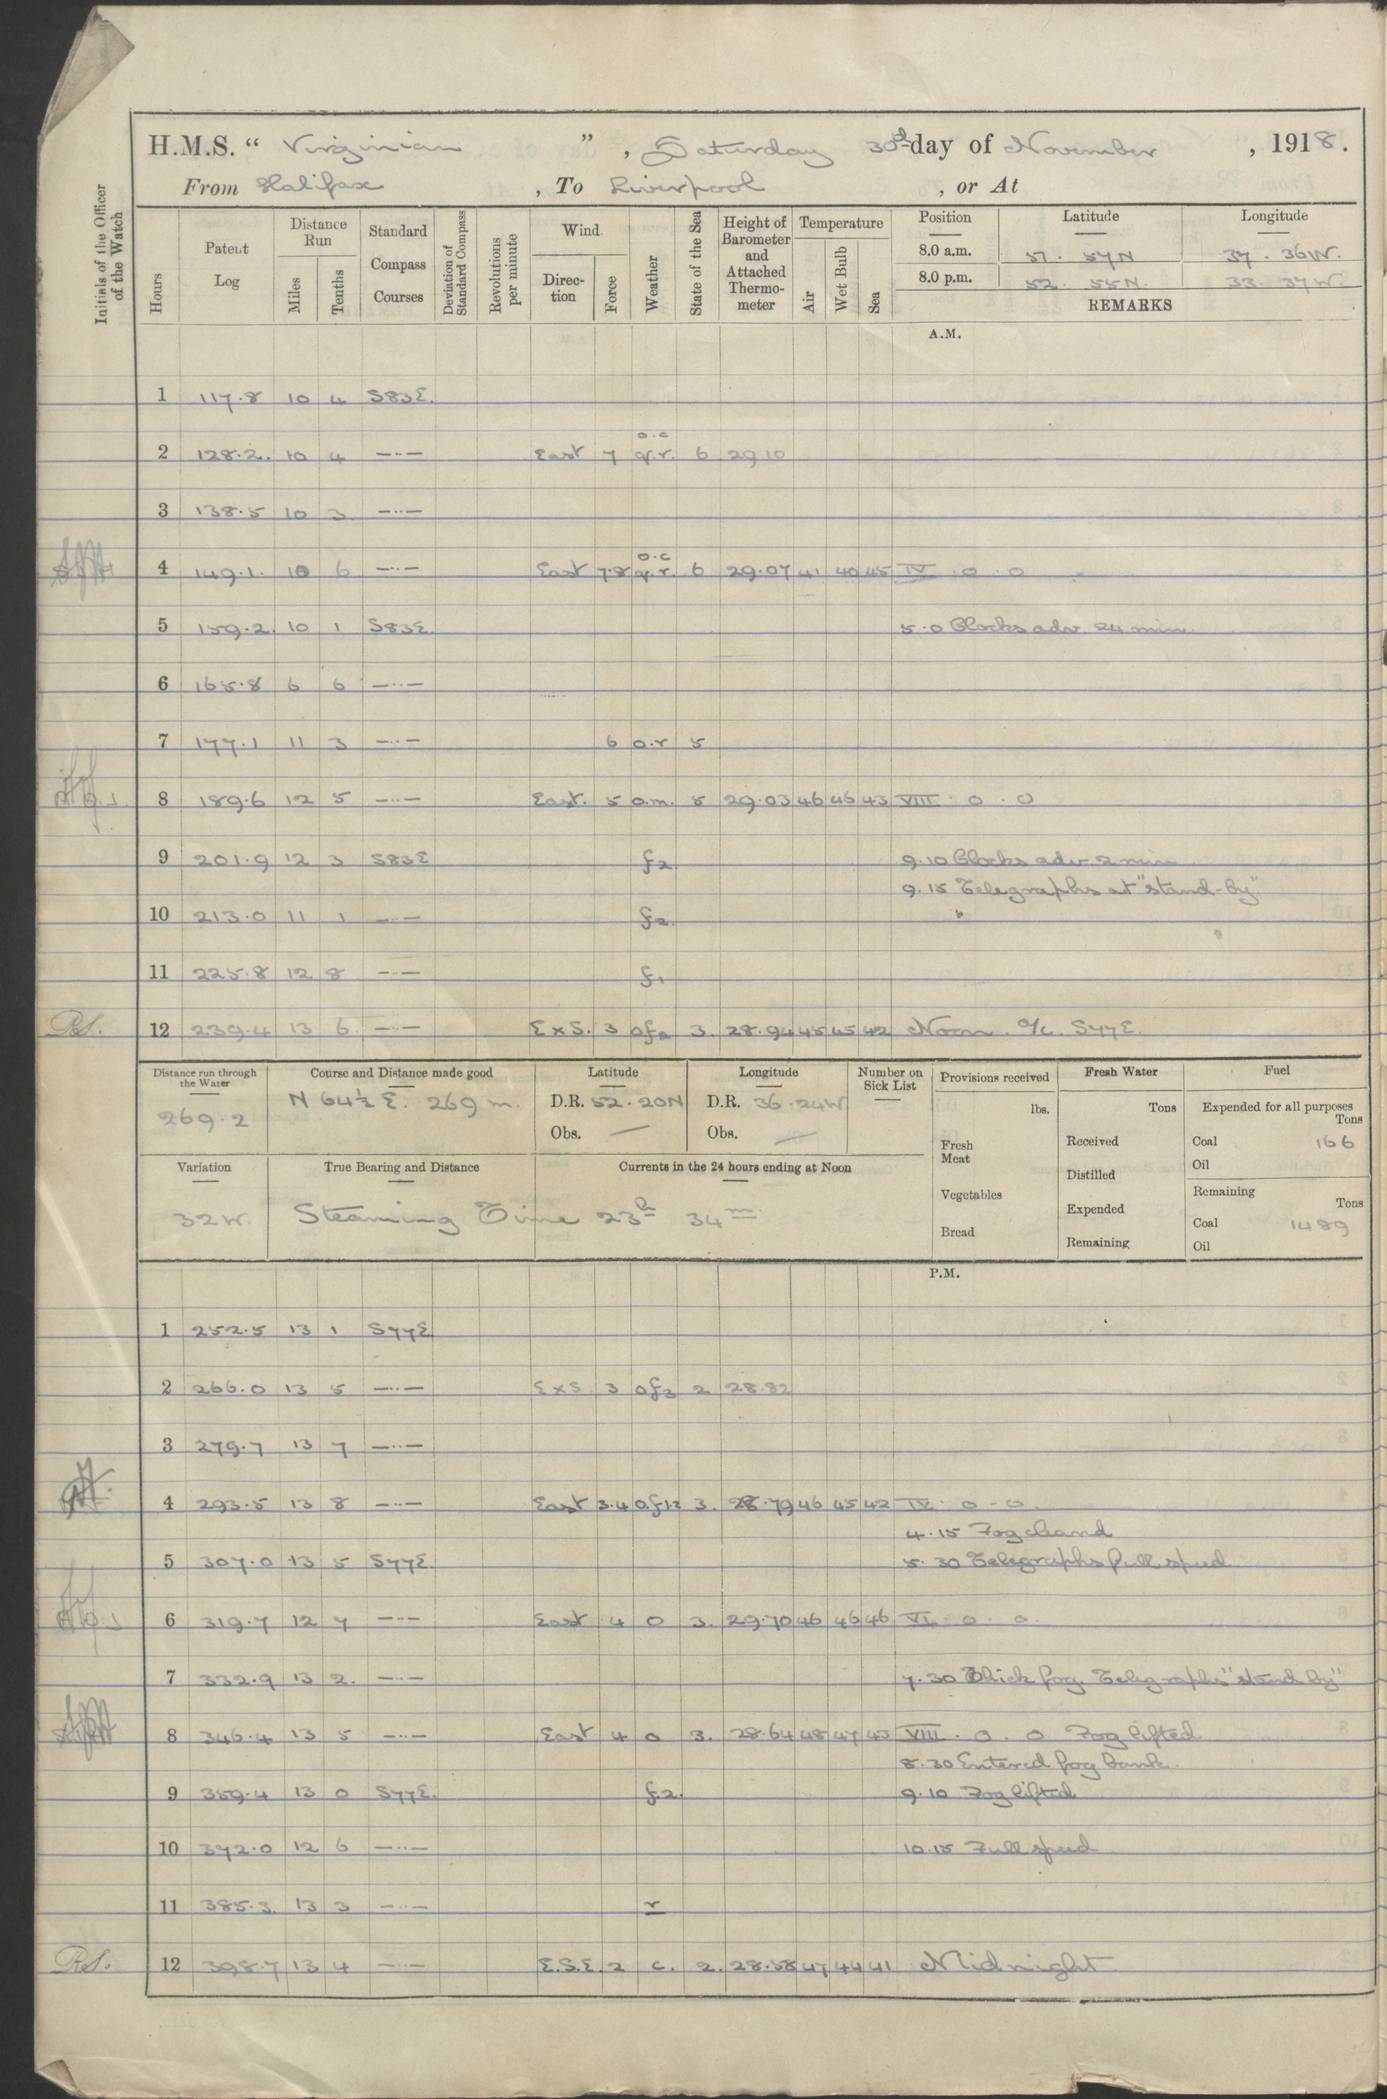 H.M.S. “ Virginian ” , Saturday 30th day of November , 1918.
From Halifax , To Liverpool , or At
Initials of the Officer of the Watch
Hours Patent Log Distance Run Miles Tenths Standard Compass Courses Deviation of Standard Compass Revolutions per minute Wind Direction Force Weather State of the Sea Height of Barometer and Attached Thermometer Temperature Air Wet Bulb Sea
Position Latitude Longitude
8.0 a.m. 51 . 54N 37 . 36W.
8.0 p.m. 52 . 55N. 33 . 37W.
REMARKS
A.M.
1 117.8 10 4 S83E.
2 128.2. 10 4 —..— East 7 o.c q.r. 6 29.10
3 138.5 10 3 —..—
4 149.1. 10 6 —..— East 7.8 o.c q.r. 6 29.07 41 40 45 IV . 0 . 0
5 159.2. 10 1 S83E. 5.0 Clocks adv. 24 min.
6 165.8 6 6 —..—
7 177.1 11 3 —..— 6 o.r 5
8 189.6 12 5 —..— East. 5 o.m. 5 29.03 46 46 43 VIII . 0 . 0
9 201.9 12 3 S83E f2. 9.10 Clocks adv. 2 min
9.15 Telegraphs at "stand-by"
10 213.0 11 1 —..— f2.
11 225.8 12 8 —..— f1
R.S. 12 239.4 13 6 —..— ExS. 3 of2 3. 28.94 45 45 42 Noon. a/c. S77E.
Distance run through the Water Course and Distance made good Latitude Longitude Number on Sick List Provisions received Fresh Water Fuel
269.2 N 64½ E. 269 m. D.R. 52.20N D.R. 36.24W —
Obs. — Obs. —
lbs. Tons Expended for all purposes Tons
Fresh Meat Received Coal 166
Distilled Oil
Variation True Bearing and Distance Currents in the 24 hours ending at Noon
32W. Steaming Time 23h 34m
Vegetables Expended Remaining Tons
Bread Remaining Coal 1489
Oil
P.M.
1 252.5 13 1 S77E
2 266.0 13 5 —..— ExS. 3 of3 2 28.82
3 279.7 13 7 —..—
4 293.5 13 8 —..— East 3.4 o.f12 3. 28.79 46 45 42 IV . 0 - 0.
4.15 Fog cleared
5 307.0 13 5 S77E. 5.30 Telegraphs full speed
6 319.7 12 7 —..— East 4 o 3. 29.70 46 46 46 VI . 0 . 0.
7 332.9 13 2. —..— 7.30 Thick fog. Telegraphs "stand by"
8 346.4 13 5 —..— East 4 o 3. 28.64 48 47 43 VIII . 0 . 0 Fog lifted
8.30 Entered fog bank.
9 359.4 13 0 S77E. f.2. 9.10 Fog lifted
10 372.0 12 6 —..— 10.15 Full speed
11 385.3 13 3 —..— r
R.S. 12 398.7 13 4 —..— E.S.E. 2 c. 2. 28.58 47 44 41 Midnight